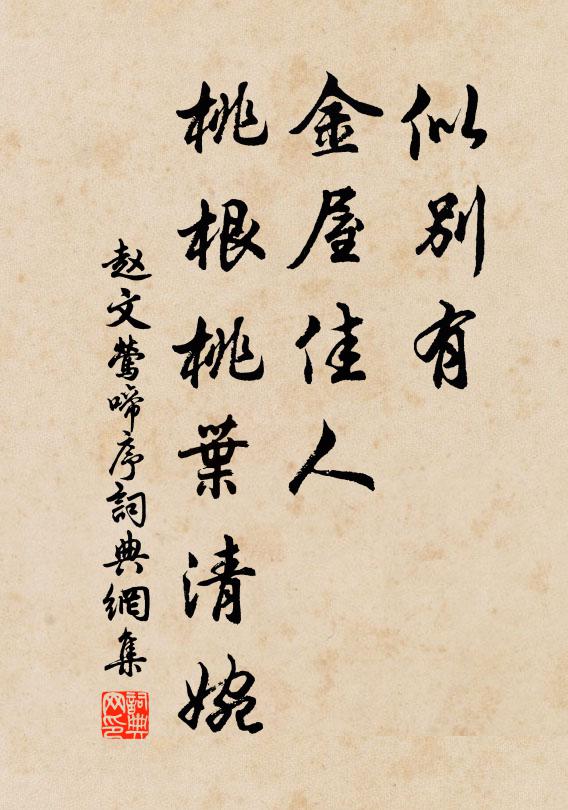 似别有
金屋佳人
桃根桃葉清婉
赵文莺啼序詞典網集
詞典网印